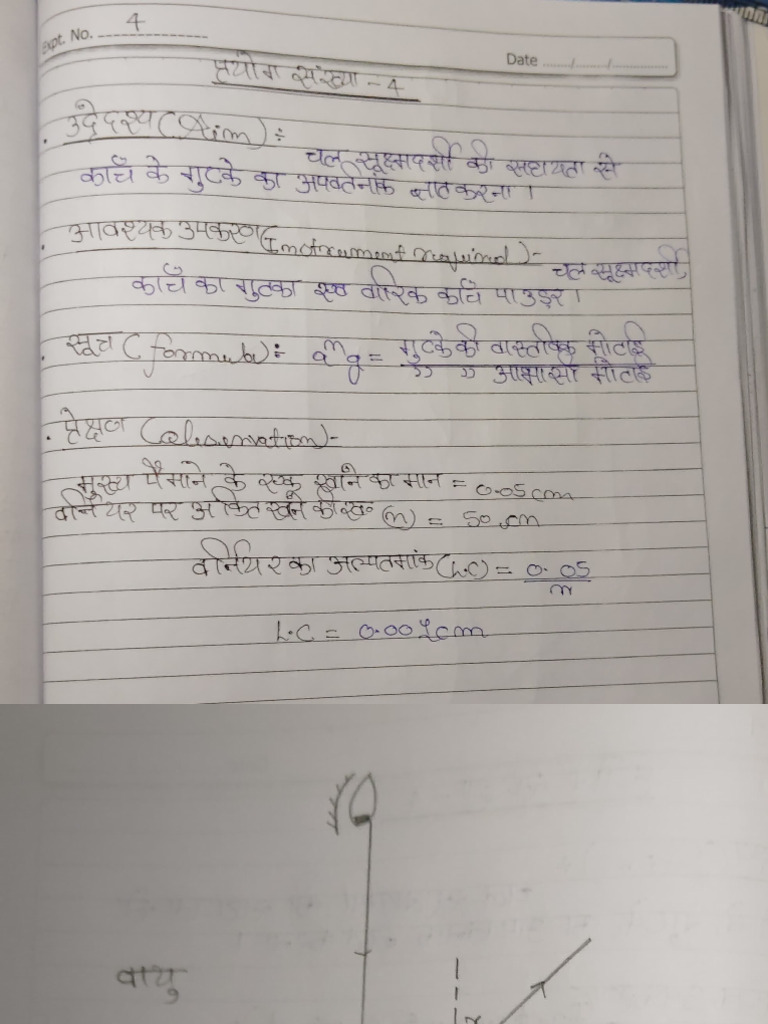 Expt. No. 4
Date ....../....../......
प्रयोग संख्या - 4
उद्देश्य (Aim) :
चल सूक्ष्मदर्शी की सहायता से
काँच के गुटके का अपवर्तनांक ज्ञात करना ।
आवश्यक उपकरण (Instrument required) -
चल सूक्ष्मदर्शी,
काँच का गुटका एक वारिक काँच पाउडर ।
सूत्र (formula) : aμg = गुटके की वास्तविक मोटाई
,, ,, आभासी मोटाई
प्रेक्षण (observation) -
मुख्य पैमाने के एक खाने का मान = 0.05 cm
वर्नियर पर अंकित खाने की सं॰ (n) = 50 cm
वर्नियर का अल्पतमांक (L.C) = 0.05
n
L.C = 0.001 cm
वायु